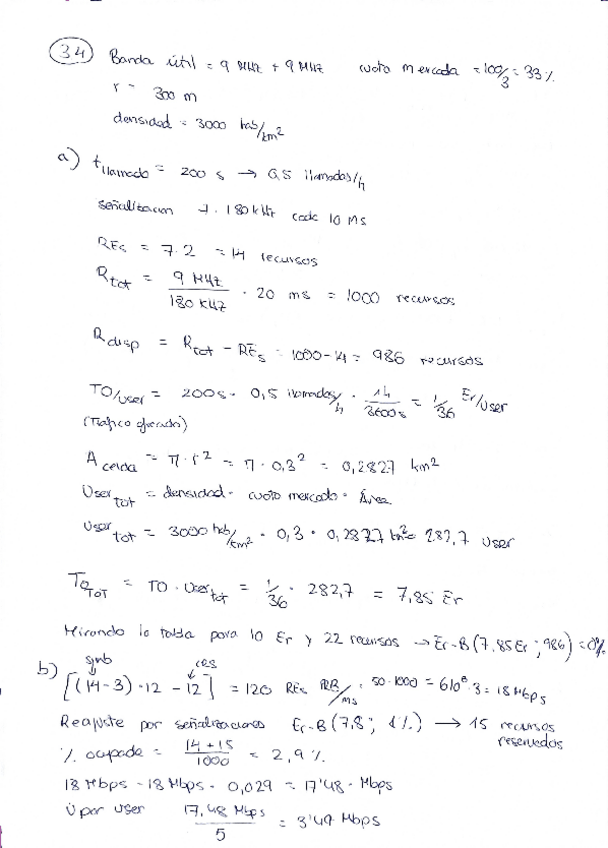 3.4 Banda útil = 9 MHz + 9 MHz cuota mercado = 100/3 = 33 %
r = 300 m
densidad = 3000 hab/km²
a) tllamada = 200 s → 0,5 llamadas/h
señalización 7 . 180 kHz cada 10 ms
REs = 7.2 = 14 recursos
Rtot = 9 MHz / 180 kHz · 20 ms = 1000 recursos
Rdisp = Rtot - REs = 1000-14 = 986 recursos
TO/user = 200s · 0,5 llamadas/h · 1h/3600s = 1/36 Er/user
(Tráfico ofrecido)
Acelda = π · r² = π · 0,3² = 0,2827 km²
Usertot = densidad · cuota mercado · Área
usertot = 3000 hab/km² · 0,3 · 0,2827 km² = 282,7 user
TOTOT = TO · usertot = 1/36 · 282,7 = 7,85 Er
Mirando la tabla para 10 Er y 22 recursos → Er-B (7,85 Er ; 986) = 0%
símb
b) [(14-3) · 12 - 12] = 120 REs RB/ms · 50 · 1000 = 6 10⁶ · 3 = 18 Mbps
Reajuste por señalizaciones Er-B (7,8 ; 1%) → 15 recursos reservados
% ocupada = 14 + 15 / 1000 = 2,9 %
18 Mbps - 18 Mbps · 0,029 = 17'48 Mbps
17,48 Mbps / 5 = 3'49 Mbps